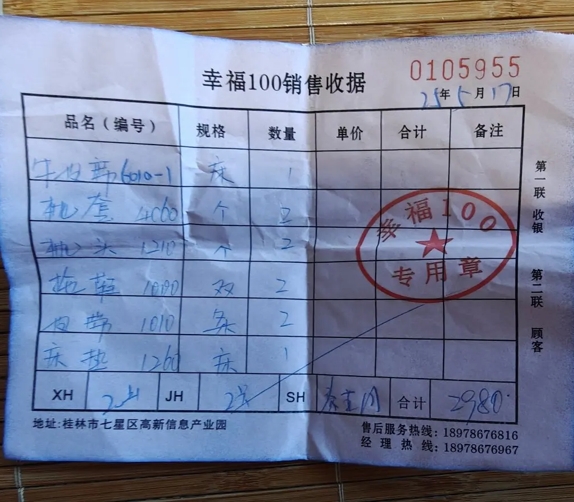 幸福100销售收据
0105955
25年5月17日
品名（编号） 规格 数量 单价 合计 备注
牛皮席6010-1 床 1
枕套 4060 个 2
枕头 1210 个 2
拖鞋 1000 双 2
皮带 1010 条 2
床垫 1260 床 1
XH JH SH 合计 2980
地址:桂林市七星区高新信息产业园
售后服务热线: 18978676816
经 理 热 线: 18978676967
第一联 收银 第二联 顾客
幸福100
专用章